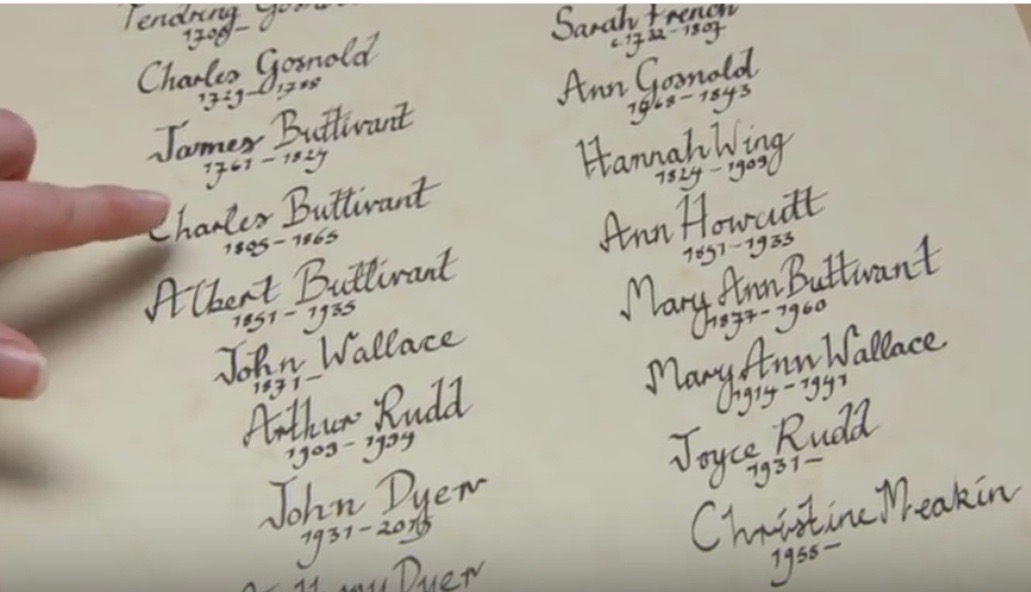 Tendring
Charles Gosnold
James Buttivant
1761 - 1824
Charles Buttivant
1805 - 1865
Albert Buttivant
1851 - 1935
John Wallace
1871 -
Arthur Rudd
John Dyer
1931 - 2015
Dyer
Sarah French
c.1722 - 1807
Ann Gosnold
1768 - 1843
Hannah Wing
1824 - 1909
Ann Howcutt
1851 - 1933
Mary Ann Buttivant
1877 - 1960
Mary Ann Wallace
1914 - 1941
Joyce Rudd
1931 -
Christine Meakin
1955 -